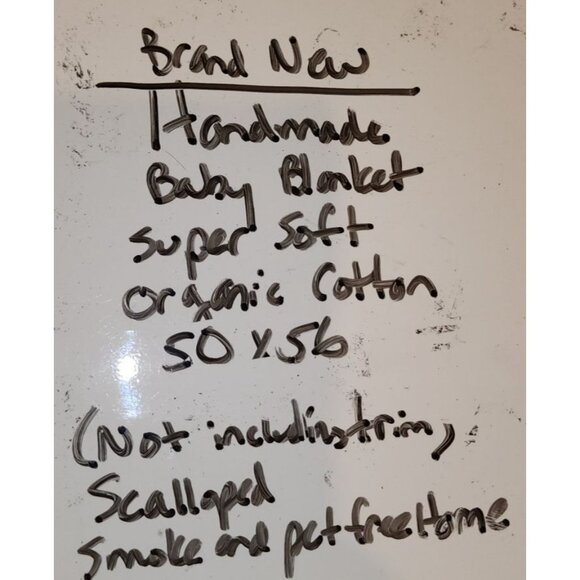 Brand New
Handmade
Baby Blanket
super soft
organic Cotton
50 x 56
(Not including trim)
Scalloped
smoke and pet free Home